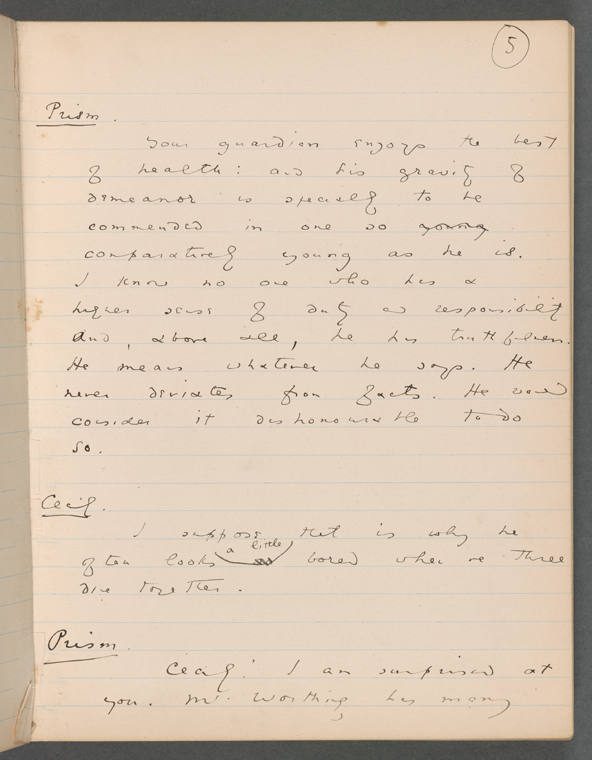 5
Prism.
Your guardian enjoys the best
of health: and his gravity of
demeanor is specially to be
commended in one so young
comparatively young as he is.
I know no one who has a
higher sense of duty and responsibility
And, above all, he has truthfulness.
He means whatever he says. He
never deviates from facts. He would
consider it dishonourable to do
so.
Cecily.
I suppose that is why he
often looks a little bored when we three
are together.
Prism.
Cecily! I am surprised at
you. Mr. Worthing has many